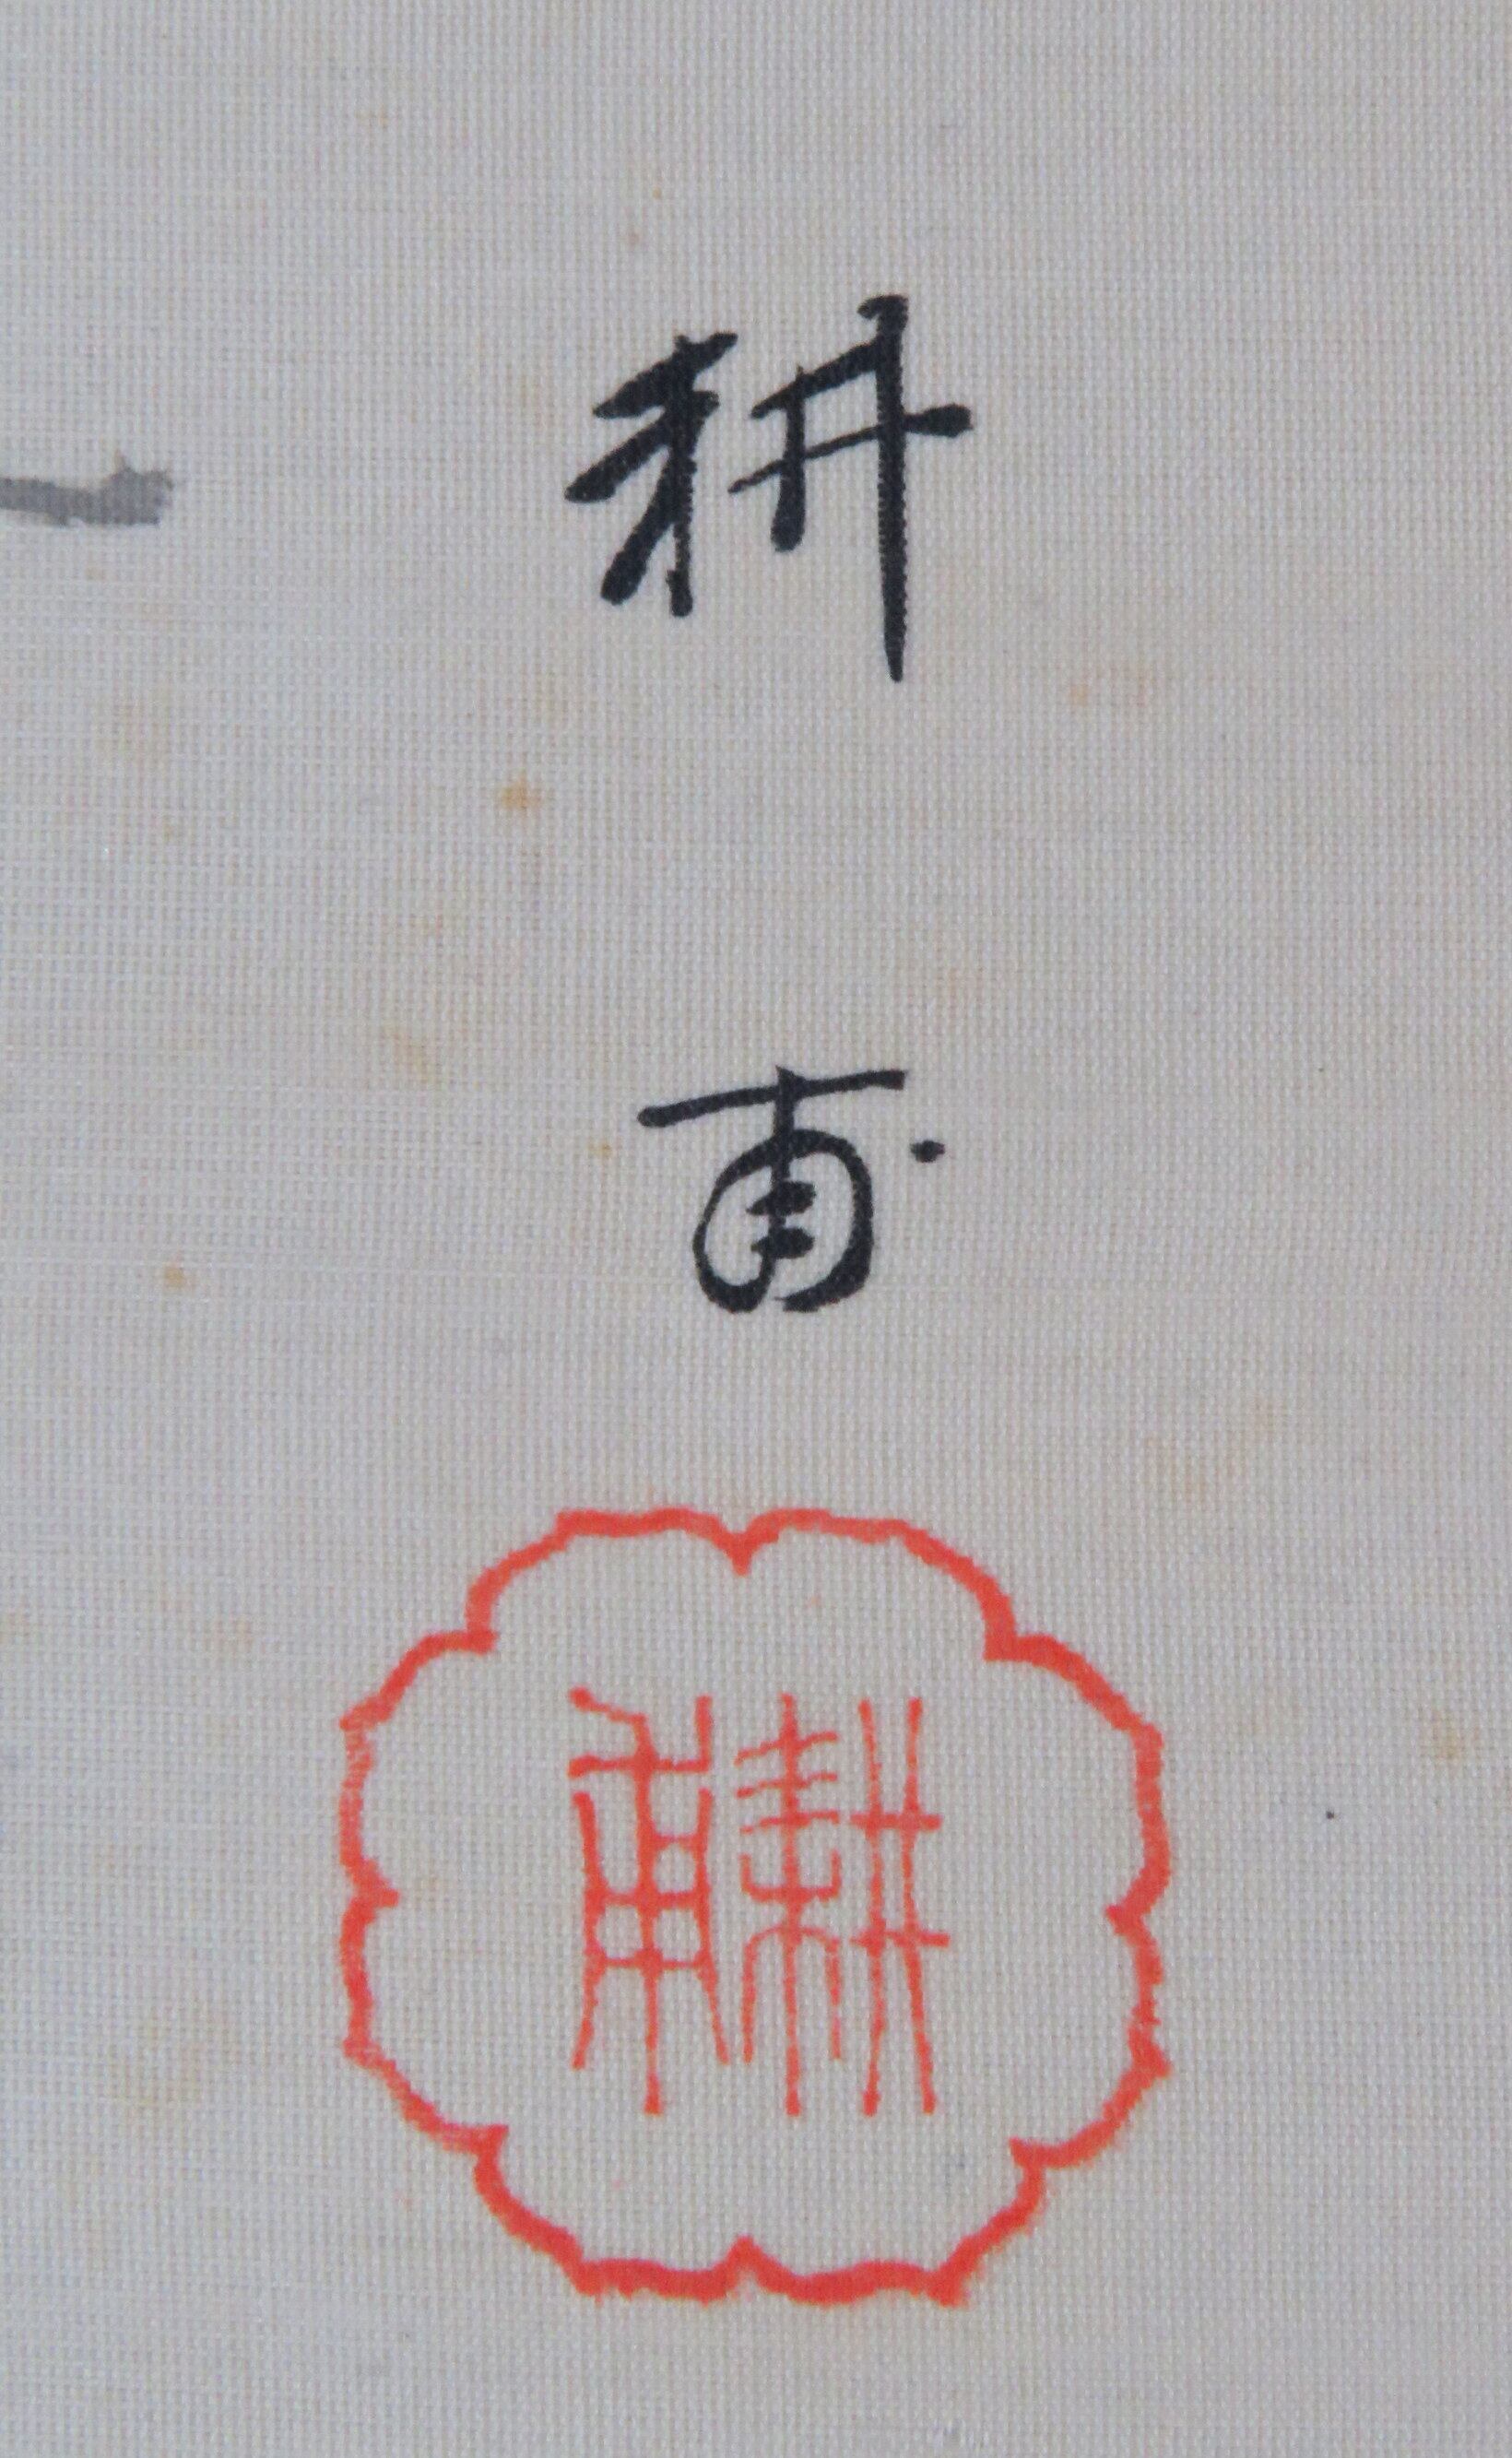 耕甫
耕甫